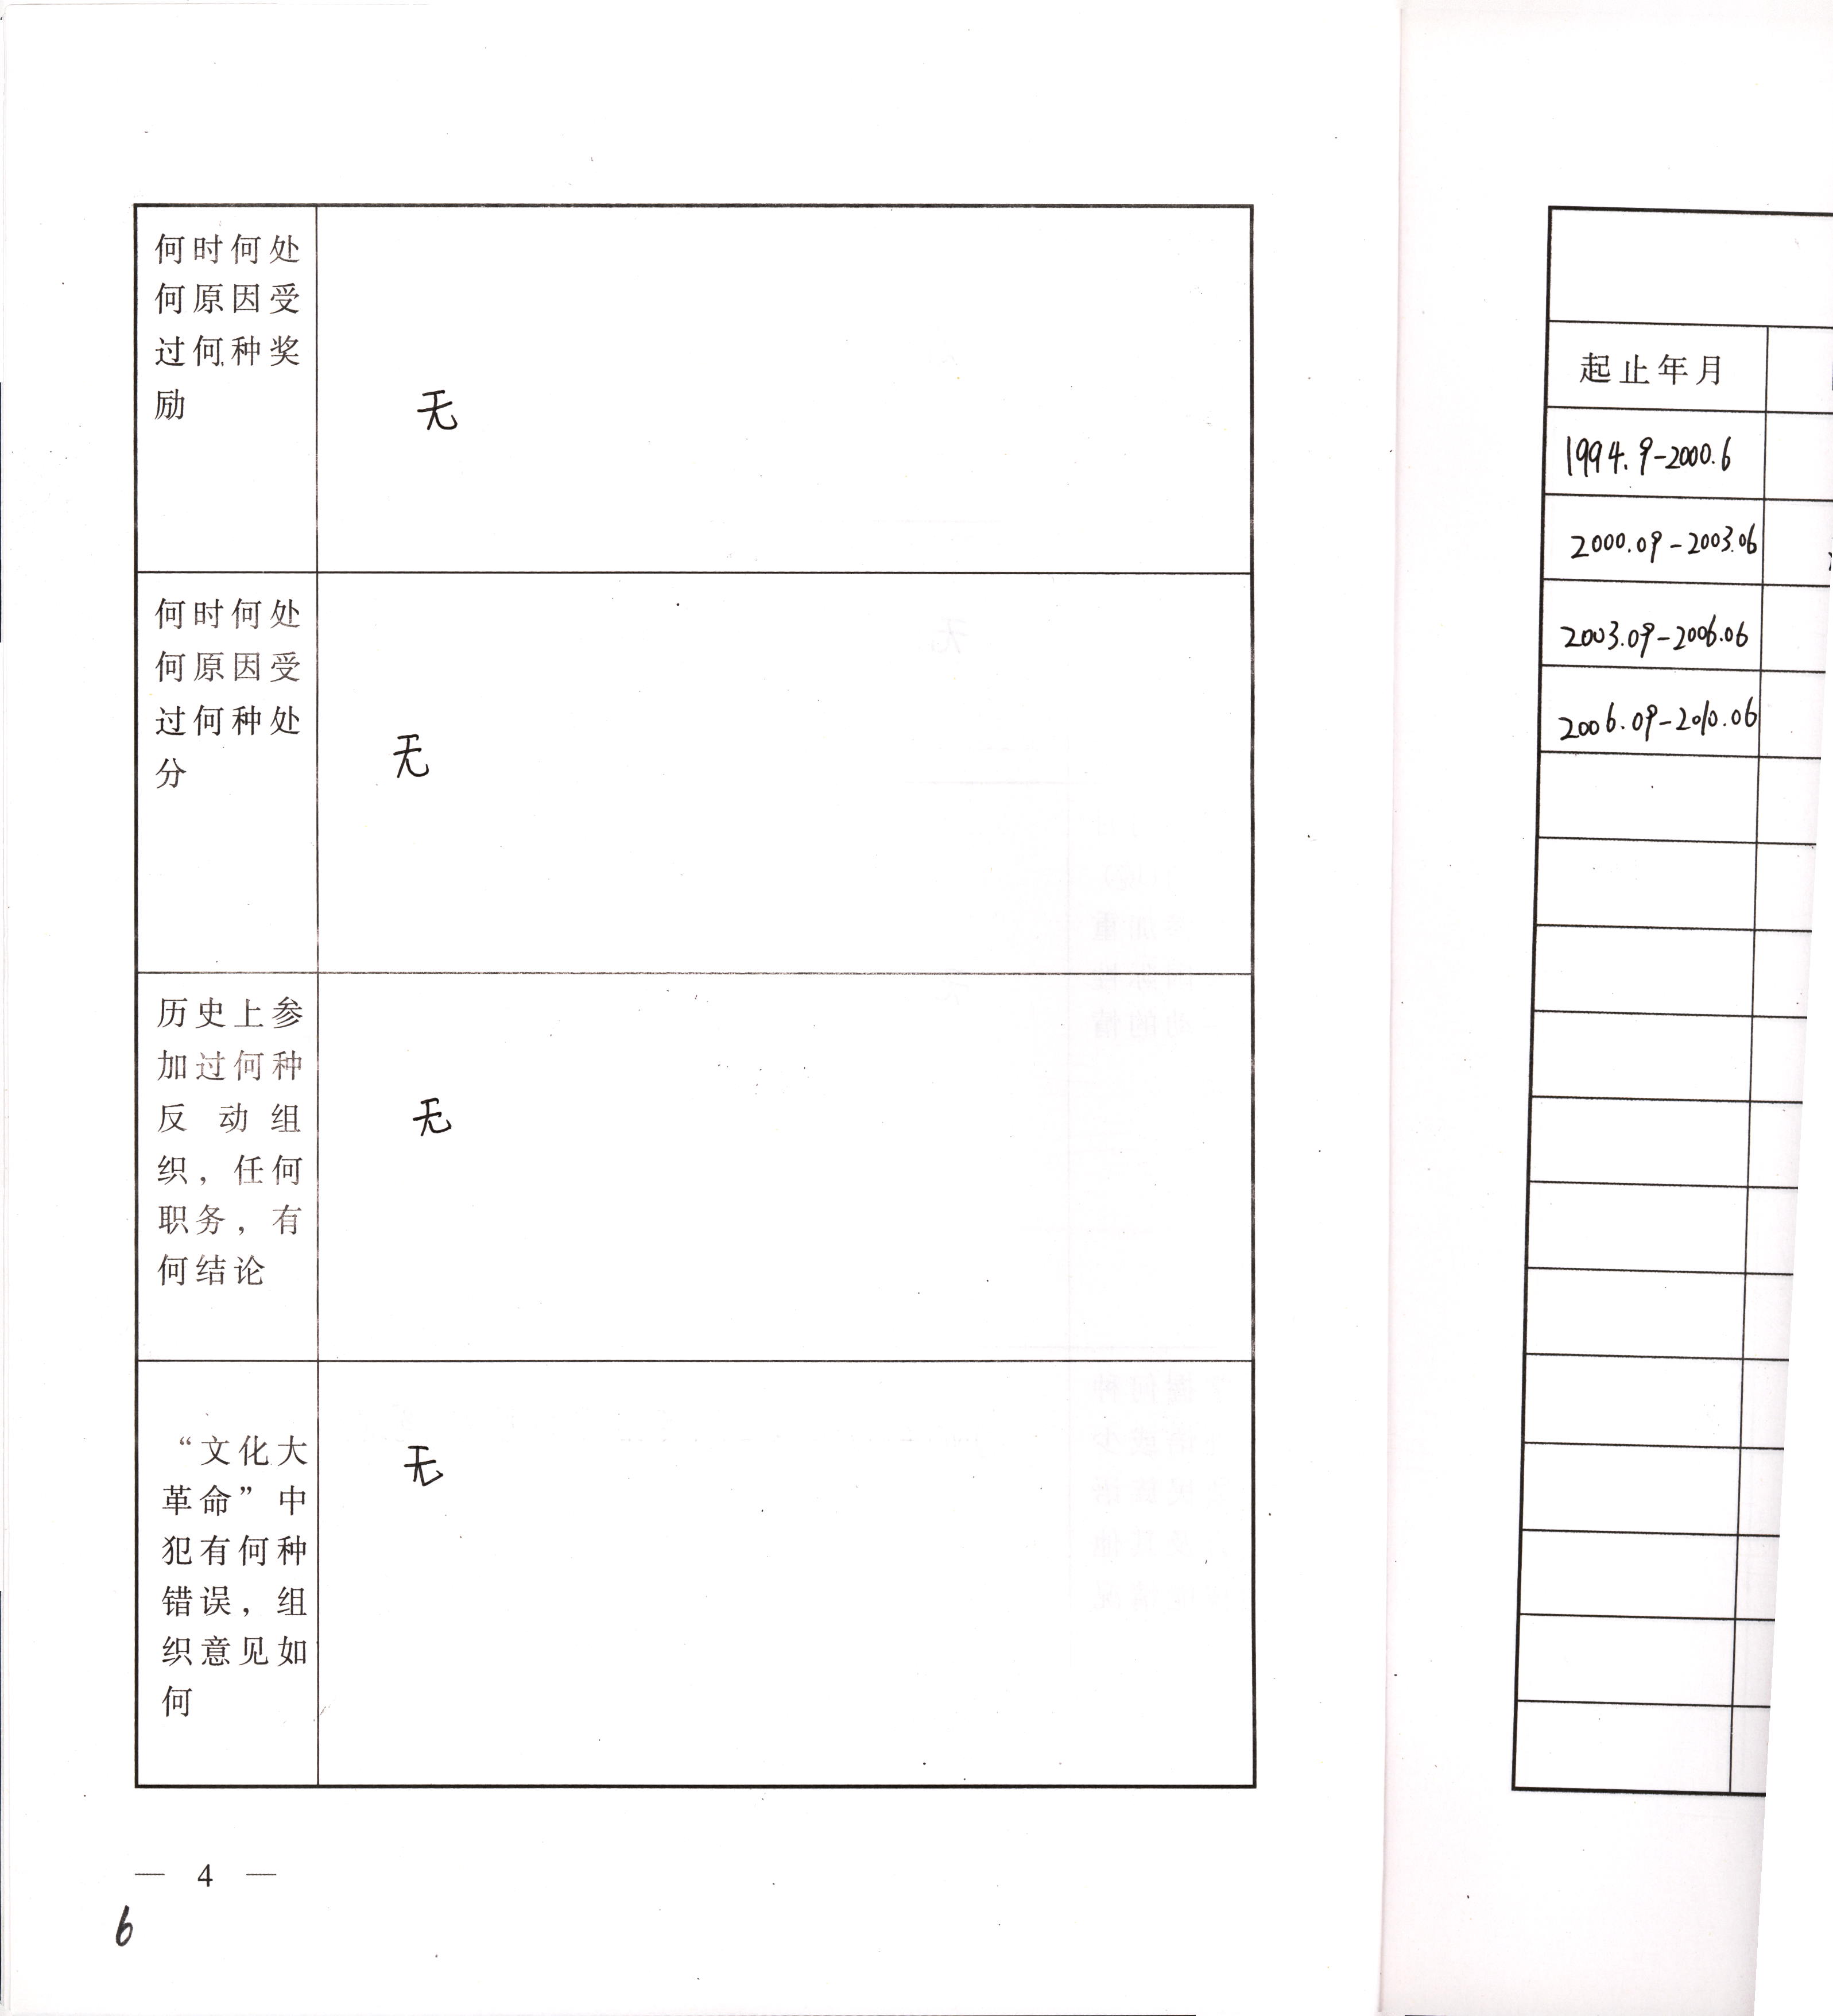 何时何处
何原因受
过何种奖
励
无
何时何处
何原因受
过何种处
分
无
历史上参
加过何种
反动组
织，任何
职务，有
何结论
无
“文化大
革命”中
犯有何种
错误，组
织意见如
何
无
— 4 —
6
起止年月
1994.9-2000.6
2000.09-2003.06
2003.09-2006.06
2006.09-2010.06